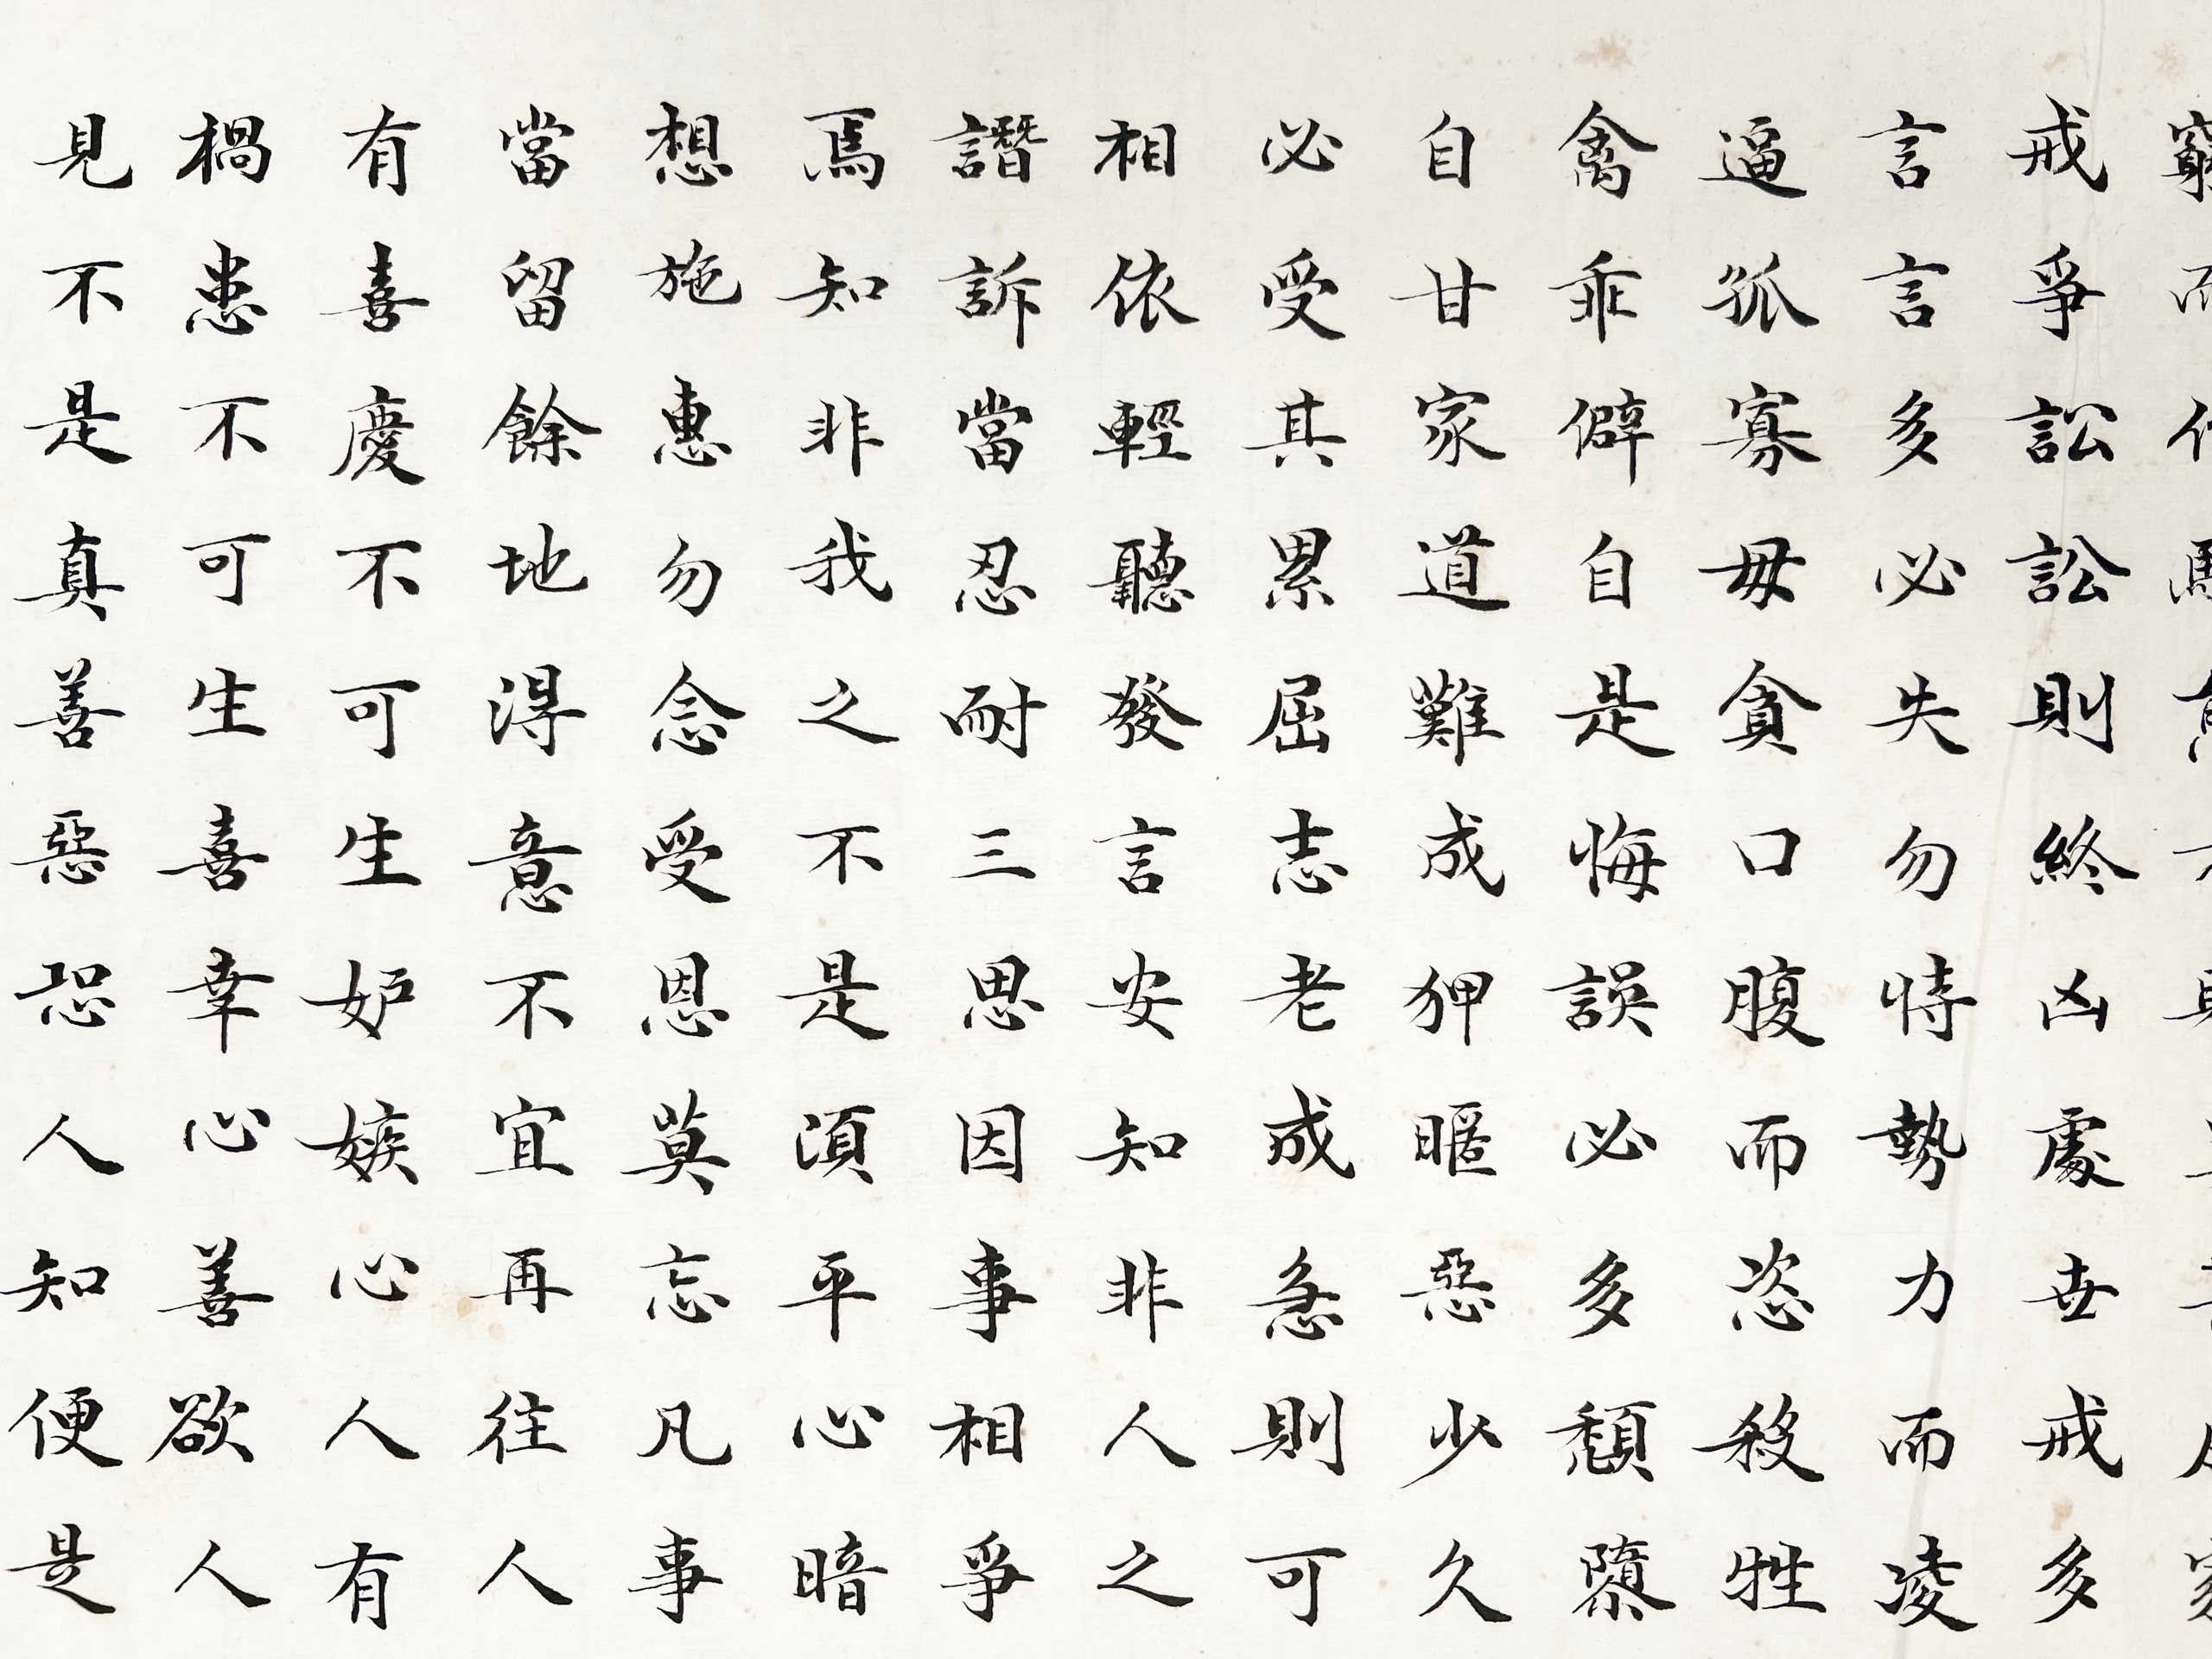 戒爭訟訟則終凶處世戒多
言言多必失勿恃勢力而凌
逼孤寡毋貪口腹而恣殺牲
禽乖僻自是悔誤必多頹隳
自甘家道難成狎暱惡少久
必受其累屈志老成急則可
相依輕聽發言安知非人之
譖訴當忍耐三思因事相爭
焉知非我之不是須平心暗
想施惠勿念受恩莫忘凡事
當留餘地得意不宜再往人
有喜慶不可生妒嫉心人有
禍患不可生喜幸心善欲人
見不是真善惡恐人知便是